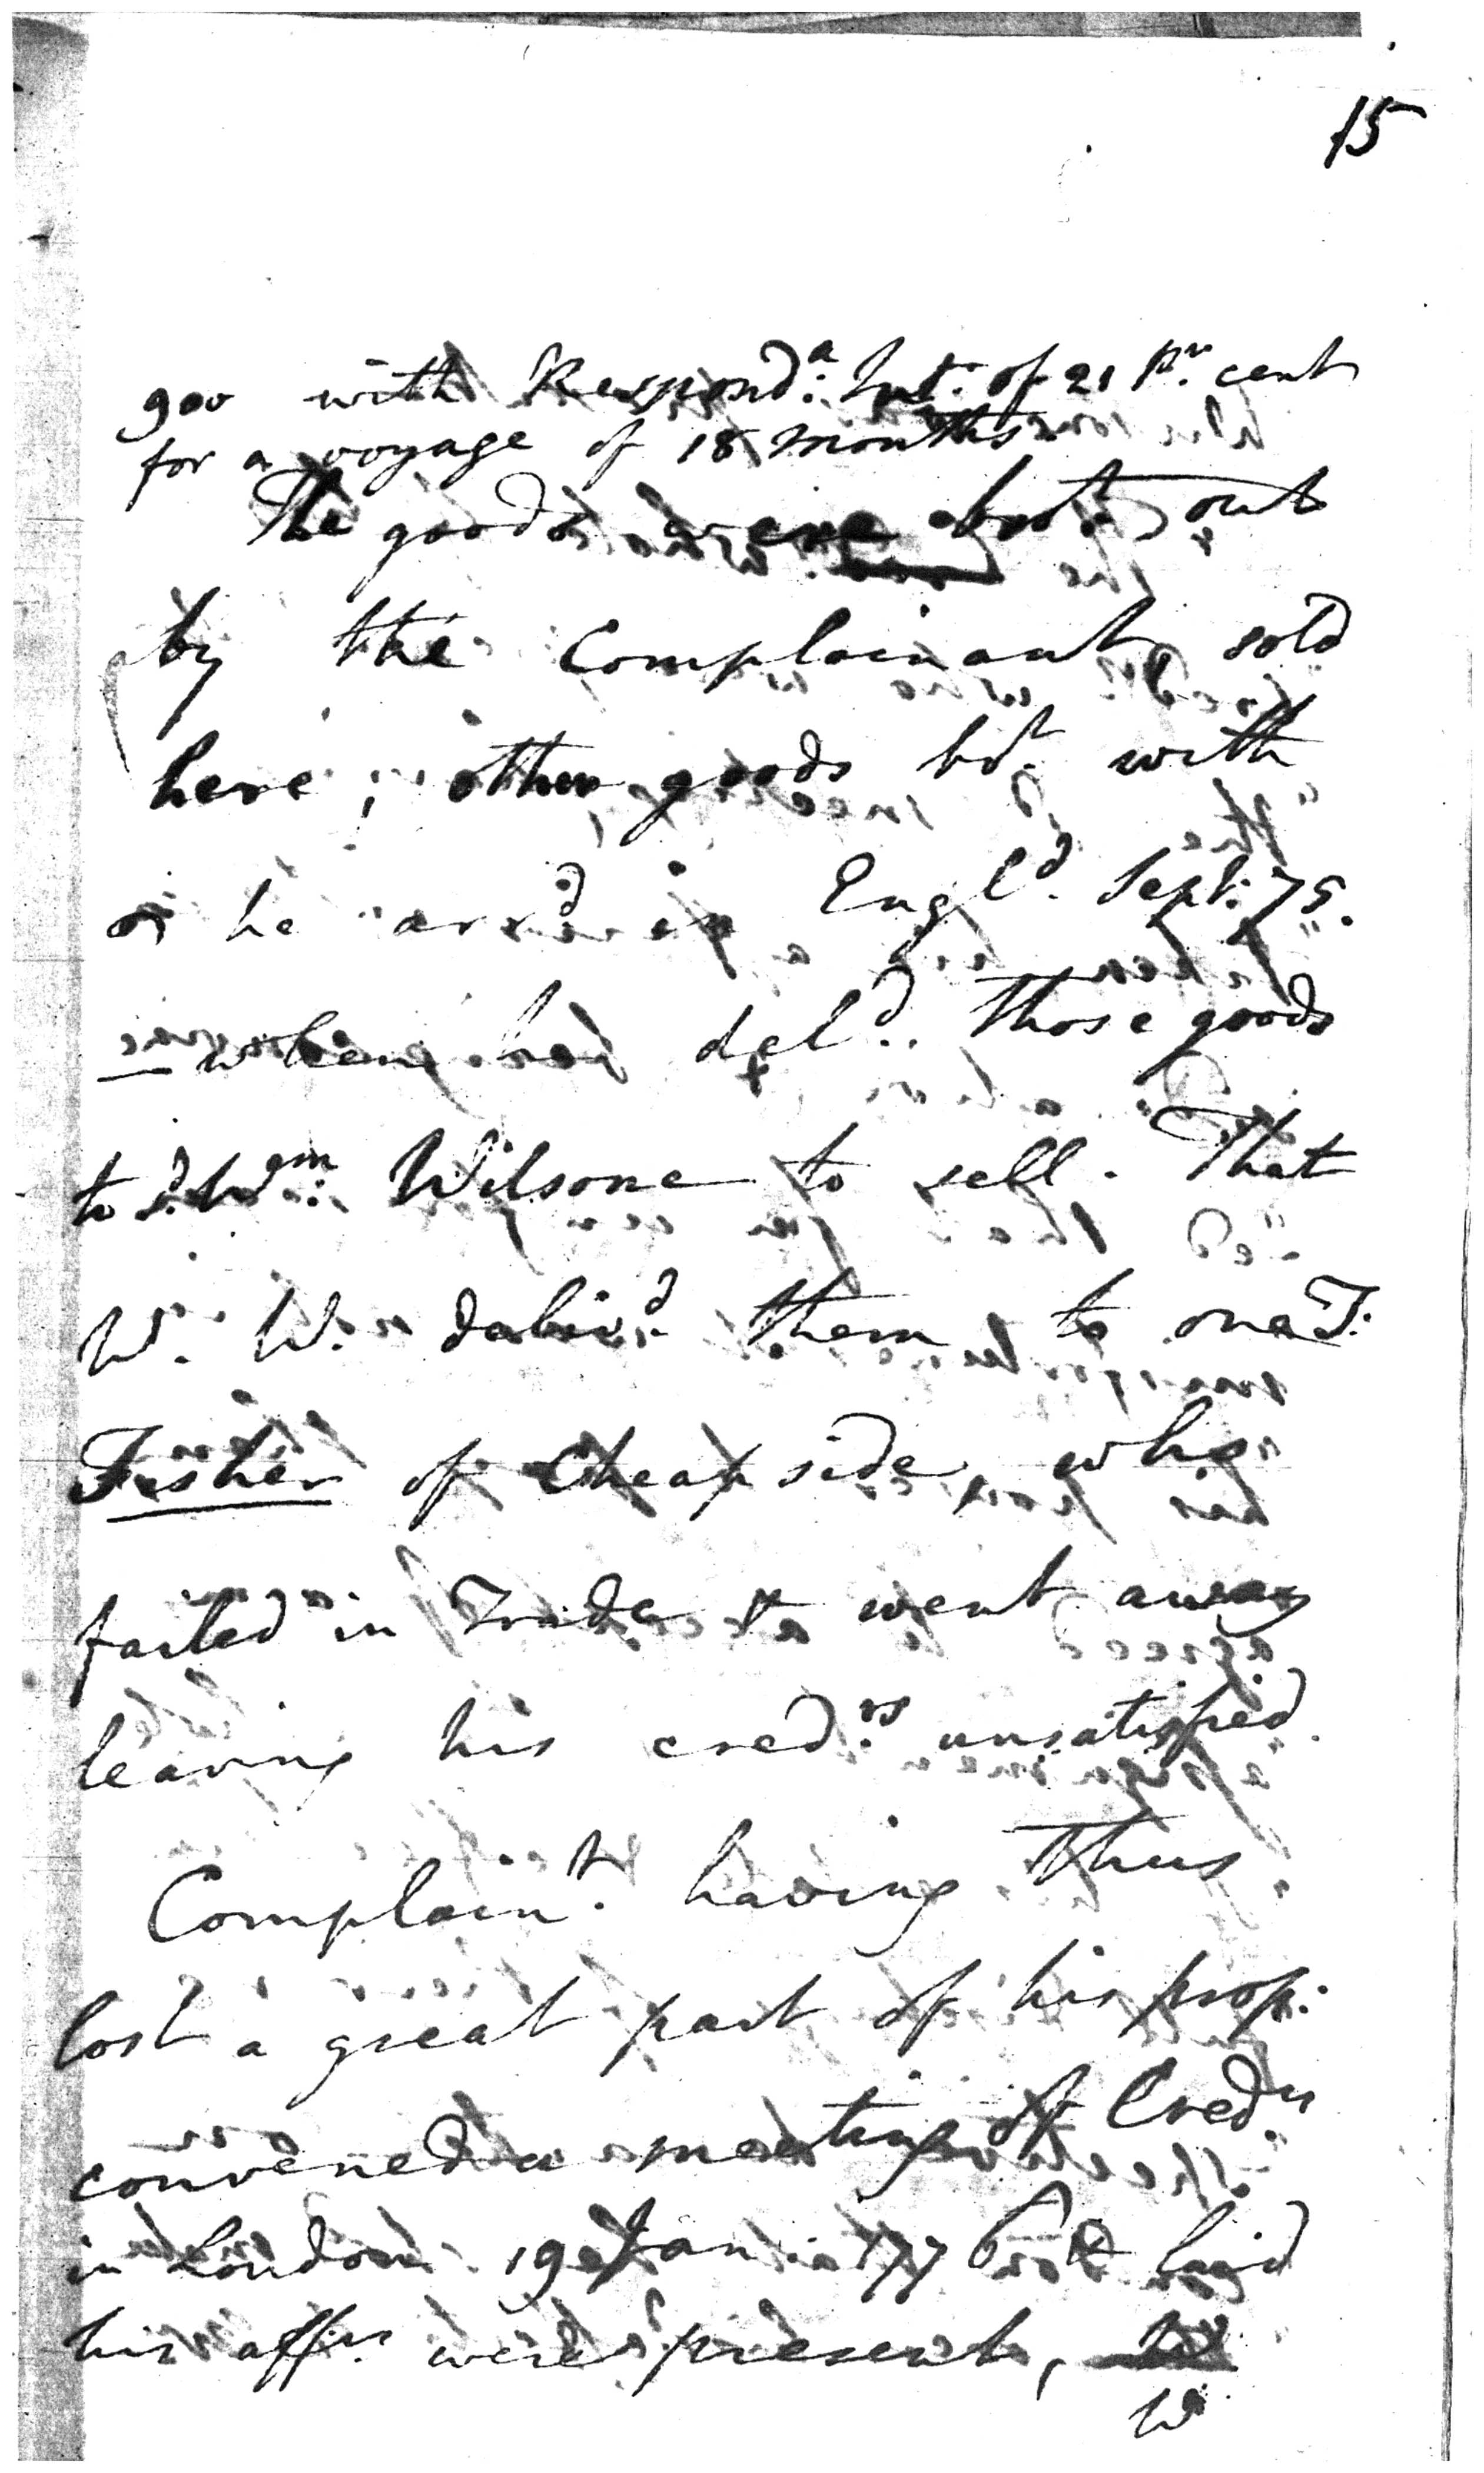 15
900 with Respond:a Int: of 21 Pr. cent
for a voyage of 18 months
The goods were bro.t out
by the Complainant sold
here; other goods bo.t with
he arr.d in Engl.d Sept: 75.
when he del.d those goods
to s.d W.m Wilsone to sell. That
W. W. deliv.d them to one T.
Fisher of Cheapside, who
failed in Trade & went away
leaving his cred.rs unsatisfied.
Complain.t having thus
lost a great part of his prop:
convened a meeting of Cred.rs
in London 19 Jan: 177 laid
his aff.rs were present,
W